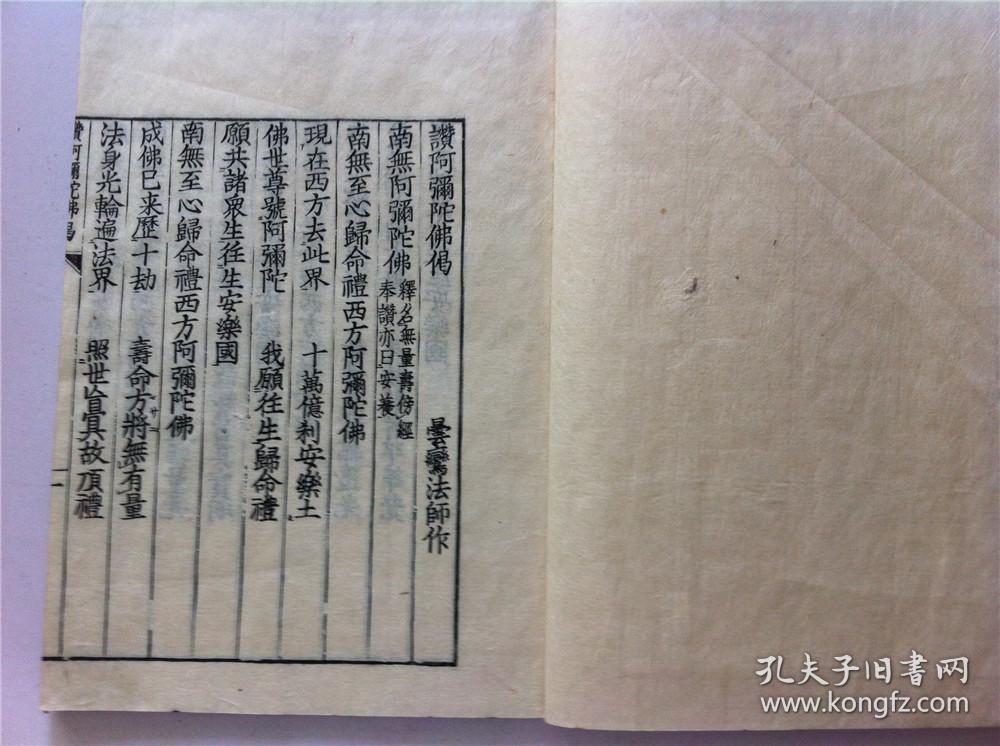 讚阿彌陀佛偈 曇鸞法師作
南無阿彌陀佛 釋名無量壽傍經
奉讚亦曰安養
南無至心歸命禮西方阿彌陀佛
現在西方去此界 十萬億刹安樂土
佛世尊號阿彌陀 我願往生歸命禮
願共諸眾生往生安樂國
南無至心歸命禮西方阿彌陀佛
成佛已来歷十劫 壽命方將無有量
法身光輪遍法界 照世盲冥故頂禮
讚阿彌陀佛偈 一
孔夫子旧書网
www.kongfz.com